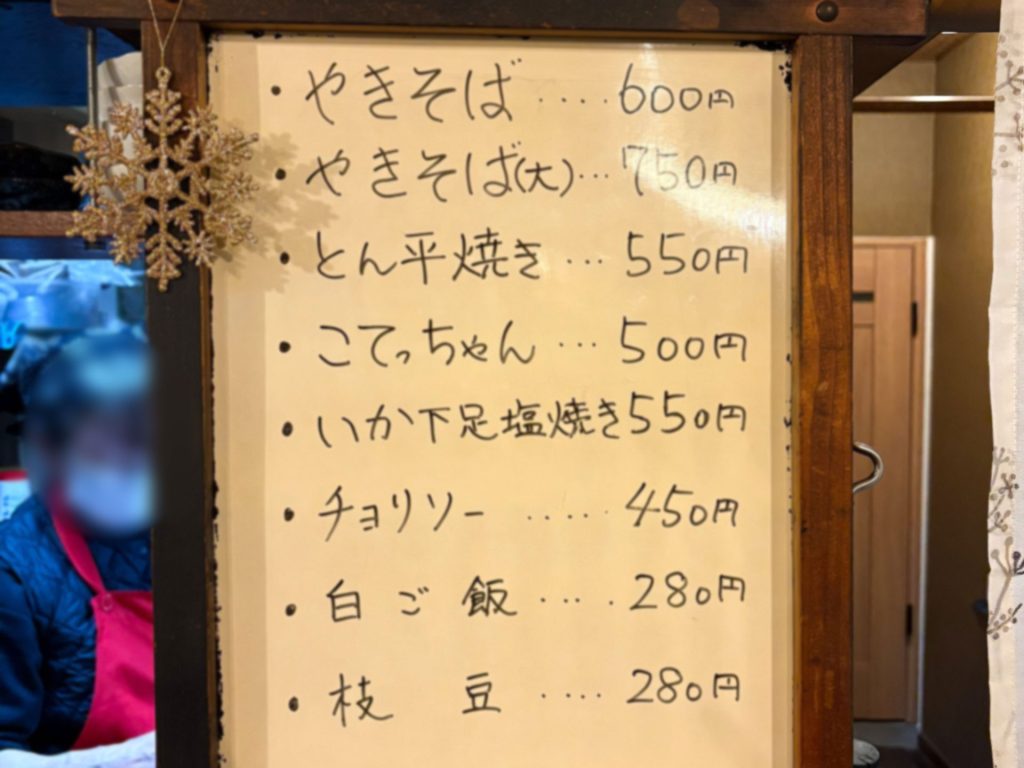 ・やきそば ････600円
・やきそば(大)･･･750円
・とん平焼き ･･･ 550円
・こてっちゃん ･･･ 500円
・いか下足塩焼き550円
・チョリソー ･････ 450円
・白ご飯 ････ 280円
・枝豆 ････ 280円